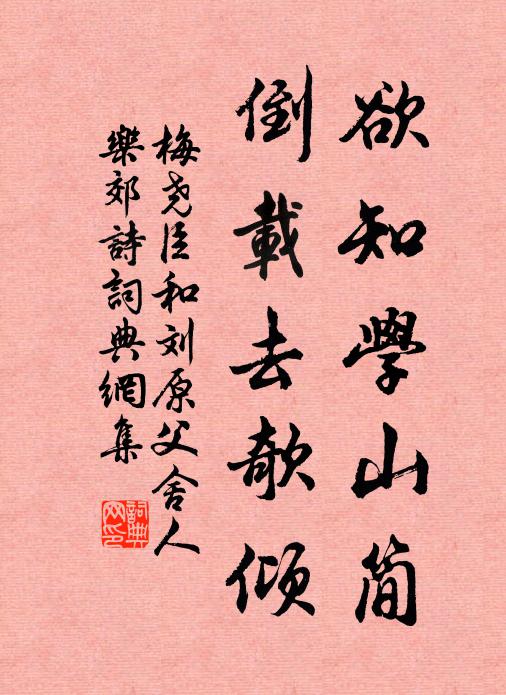 欲知學山简
倒載去欹傾
梅尧臣和刘原父舍人
樂郊詩詞典網集
詞典网印